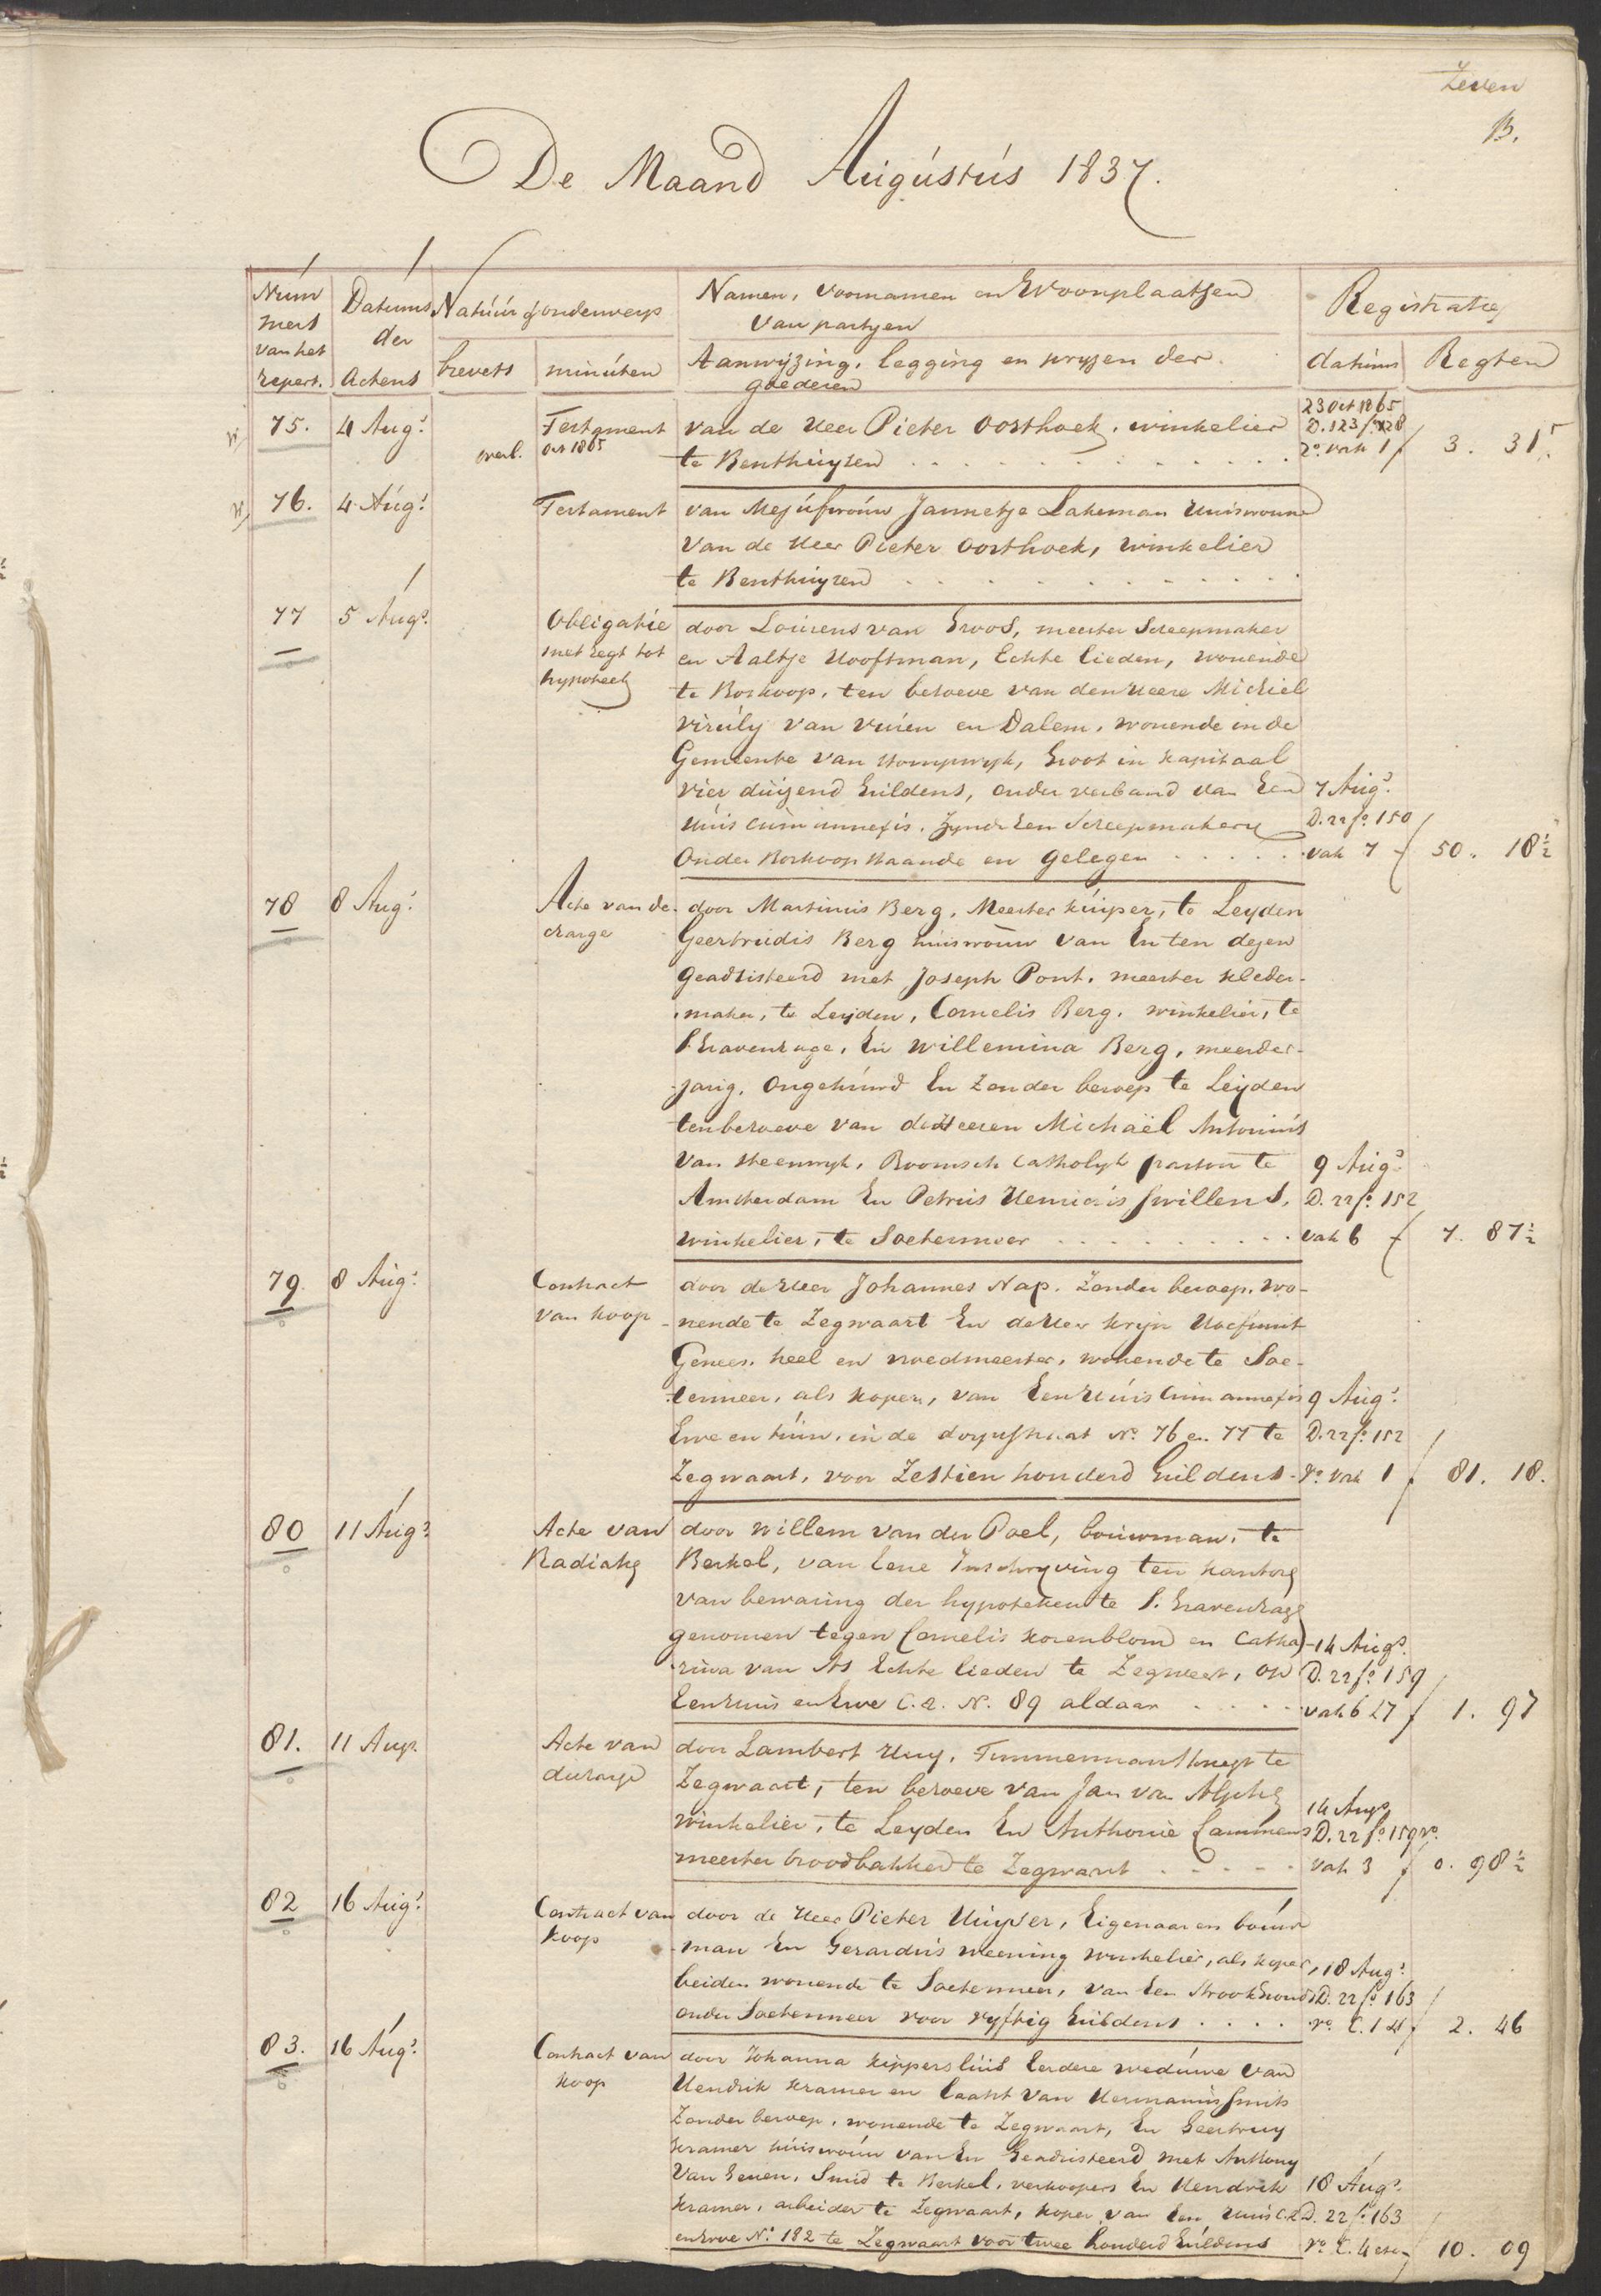 Zeven
B.
De Maand Augustus 1837.
Num
mers
van het
repert.
Datums
der
Actens
Natuur of onderwerp
brevets
minuten
Namen, Voornamen en Woonplaatsen
van partyen
Aanwyzing, legging en pryzen der
goederen
Registratie
datums
Regten
75. 4 Aug.s
overl.
Testament
Oct 1865
van de Heer Pieter Oosthoek, winkelier
te Benthuyzen
23 Oct 1865
D. 123 f.o 128
2.o vak 1 f 3. 31 5
76. 4 Aug.s
Testament
van Mejufvrouw Jannetje Lakeman Huisvrouw
van de Heer Pieter Oosthoek, winkelier
te Benthuyzen
77 5 Aug.s
Obligatie
met regt tot
hypotheek
door Lourens van Groos, meester Scheepmaker
en Aaltje Hooftman, Echte lieden, wonende
te Boskoop, ten behoeve van den Heere Michiel
Viruly van Vuren en Dalem, wonende in de
Gemeente van Stompwyk, Groot in Kapitaal
vier duizend Guldens, onder verband van Een
Huis cum annexis, zynde Een Scheepmakery
Onder Boskoop Staande en gelegen
7 Aug.s
D. 22 f.o 150
vak 7 f 50. 18 1/2
78 8 Aug.s
Acte van de-
charge
door Martinus Berg, Meester kuiper, te Leyden
Geertruidis Berg huisvrouw van En ten dezen
geadsisteerd met Joseph Pont, meester kleder-
maker, te Leyden, Cornelis Berg, winkelier, te
S.Gravenhage, En Willemina Berg, meerder-
jarig, Ongehuwd En Zonder beroep te Leyden
ten behoeve van de Heeren Michaël Antonius
van Steenwyk, Roomsch Catholyk pastoor te
Amsterdam En Petrus Henricus Swillens,
winkelier, te Soetermeer
9 Aug.s
D. 22 f.o 152
vak 6 f 7. 87 1/2
79. 8 Aug.s
Contract
van koop
door de Heer Johannes Nap. Zonder beroep, wo-
nende te Zegwaart En de Heer Kryn Hoefsmit
Genees, heel en vroedmeester, wonende te Soe-
termeer, als koper, van Een Huis Cum annexis
Erve en tuin, in de dorpstraat N.o 76 en 77 te
Zegwaart, voor Zestien honderd Guldens
9 Aug.s
D. 22 f.o 152
v.o vak 1 f 81. 18.
80 11 Aug.s
Acte van
Radiatie
door Willem van der Poel, bouwman, te
Berkel, van Eene Inschryving ten kantore
van bewaring der hypotheken te S. Gravenhage
genomen tegen Cornelis Korenblom en Catha-
rina van As Echte lieden te Zegwaart, op
Een Huis en Erve C.a. N.o 89 aldaar
14 Aug.s
D. 22 f.o 159
vak 6 & 7 f 1. 97
81. 11 Aug.s
Acte van
decharge
door Lambert Huy, Timmermansknegt te
Zegwaart, ten behoeve van Jan van Alphe
winkelier, te Leyden En Anthonie Lammens
meester broodbakker te Zegwaart
14 Aug.s
D. 22 f.o 159 v.o
vak 3 f 0. 98 1/2
82 16 Aug.s
Contract van
koop
door de Heer Pieter Huyser, Eigenaar en bouw
man En Gerardus Weening winkelier, als koper,
beiden wonende te Soetermeer, van Een Strook Gronds
onder Soetermeer voor vyftig Guldens
18 Aug.s
D. 22 f.o 163
v.o C. 1 f 2. 46
83. 16 Aug.s
Contract van
koop
door Johanna Kippersluis Eerdere weduwe van
Hendrik Kramer en laatst van Hermanus Smits
Zonder beroep, wonende te Zegwaart, En Geertruy
Kramer huisvrouw van En Geadsisteerd met Anthony
van Genen, Smid te Berkel, verkoopers En Hendrik
Kramer, arbeider te Zegwaart, koper van Een Huis C.a
en Erve N.o 182 te Zegwaart voor twee honderd Guldens
18 Aug.s
D. 22 f.o 163
v.o C. 4 f 10. 09